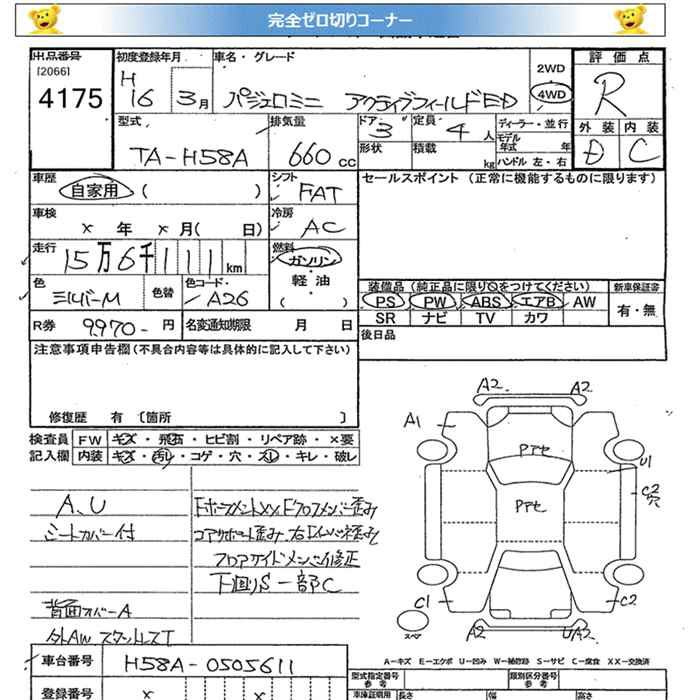 完全ゼロ切りコーナー
出品番号 初度登録年月 車名・グレード 2WD 評価点
[2066] H 4WD R
4175 16 3月 パジェロミニ アクティブフィールドED
型式 排気量 ドア 3 定員 4人 ディーラー・並行 外装 内装
TA-H58A 660cc 形状 積載 kg モデル年式 年 D C
ハンドル 左・右
車歴 自家用 ( ) シフト FAT セールスポイント (正常に機能するものに限ります)
車検 × 年 × 月( 日) 冷房 AC
走行 15万6千111km 燃料 ガソリン
軽油
( )
色 シルバーM 色替 色コード A26 装備品 (純正品に限り○をつけてください) 新車保証書
PS PW ABS エアB AW 有・無
SR ナビ TV カワ
R券 9970- 円 名変通知期限 月 日 後日品
注意事項申告欄(不具合内容等は具体的に記入して下さい)
修復歴 有 〔箇所 〕
検査員 FW キズ・飛石・ヒビ割・リペア跡・×要
記入欄 内装 キズ・汚れ・コゲ・穴・スレ・キレ・破レ
A、U
シートカバー付
コアサポート歪み
フロアサイドメンバー修正
下回りS一部C
背面カバーA
外AW スタッドレスT
A2 A2
A1
Pアセ
U1
C2
穴
Pアセ
C1 C2
スペア
A2 UA2
A-キズ E-エクボ U-凹み W-補修跡 S-サビ C-腐食 XX-交換済
車台番号 H58A-0505611 型式指定番号 参考 類別区分番号 参考
登録番号 × × × 車庫証明用 長さ 幅 高さ